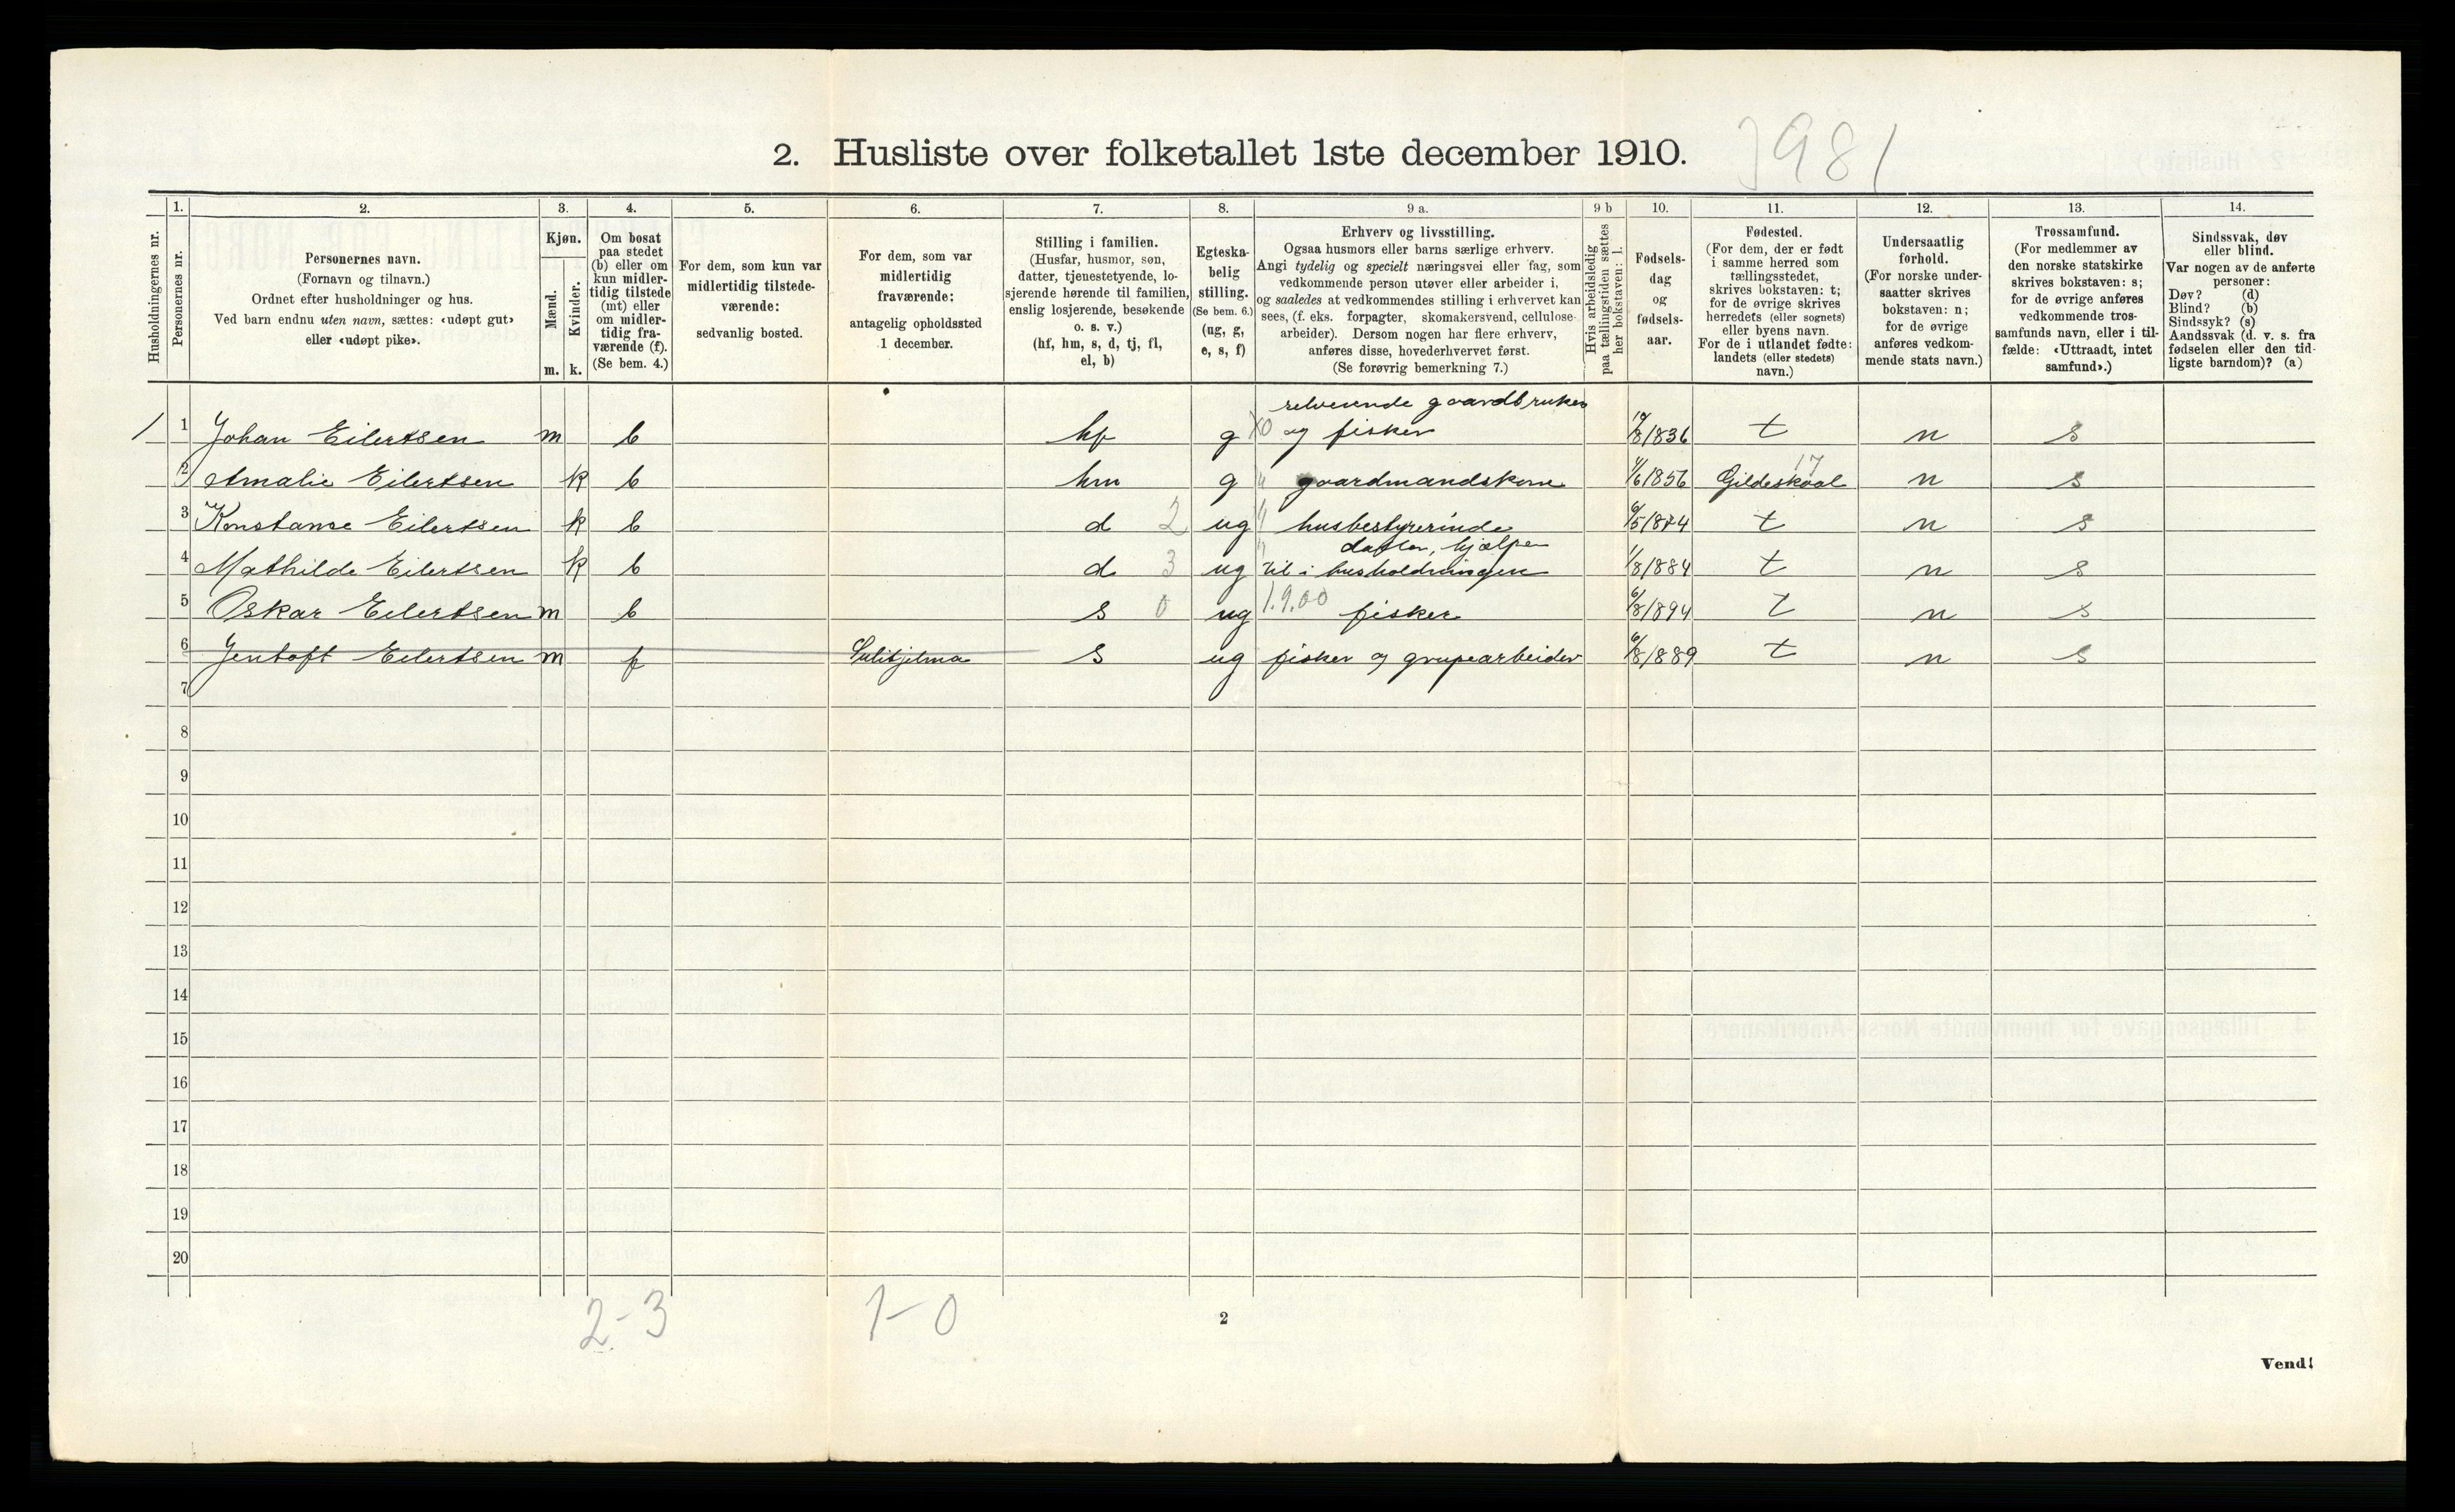 2. Husliste over folketallet 1ste december 1910.
3981
Husholdningernes nr.
1.
Personernes nr.
2.
Personernes navn.
(Fornavn og tilnavn.)
Ordnet efter husholdninger og hus.
Ved barn endnu uten navn, sættes: «udøpt gut»
eller «udøpt pike».
3.
Kjøn.
Mænd.
Kvinder.
m. k.
4.
Om bosat
paa stedet
(b) eller om
kun midler-
tidig tilstede
(mt) eller
om midler-
tidig fra-
værende (f).
(Se bem. 4.)
5.
For dem, som kun var
midlertidig tilstede-
værende:
sedvanlig bosted.
6.
For dem, som var
midlertidig
fraværende:
antagelig opholdssted
1 december.
7.
Stilling i familien.
(Husfar, husmor, søn,
datter, tjenestetyende, lo-
sjerende hørende til familien,
enslig losjerende, besøkende
o. s. v.)
(hf, hm, s, d, tj, fl,
el, b)
8.
Egteska-
belig
stilling.
(Se bem. 6.)
(ug, g,
e, s, f)
9 a.
Erhverv og livsstilling.
Ogsaa husmors eller barns særlige erhverv.
Angi tydelig og specielt næringsvei eller fag, som
vedkommende person utøver eller arbeider i,
og saaledes at vedkommendes stilling i erhvervet kan
sees, (f. eks. forpagter, skomakersvend, cellulose-
arbeider). Dersom nogen har flere erhverv,
anføres disse, hovederhvervet først.
(Se forøvrig bemerkning 7.)
9 b
Hvis arbeidsledig
paa tællingstiden sættes
her bokstaven: l.
10.
Fødsels-
dag
og
fødsels-
aar.
11.
Fødested.
(For dem, der er født
i samme herred som
tællingsstedet,
skrives bokstaven: t;
for de øvrige skrives
herredets (eller sognets)
eller byens navn.
For de i utlandet fødte:
landets (eller stedets)
navn.)
12.
Undersaatlig
forhold.
(For norske under-
saatter skrives
bokstaven: n;
for de øvrige
anføres vedkom-
mende stats navn.)
13.
Trossamfund.
(For medlemmer av
den norske statskirke
skrives bokstaven: s;
for de øvrige anføres
vedkommende tros-
samfunds navn, eller i til-
fælde: «Uttraadt, intet
samfund».)
14.
Sindssvak, døv
eller blind.
Var nogen av de anførte
personer:
Døv? (d)
Blind? (b)
Sindssyk? (s)
Aandssvak (d. v. s. fra
fødselen eller den tid-
ligste barndom)? (a)
selveiende gaardbruker
1 1 Johan Eilertsen m b hf g X0 og fisker 18/8 1836 t n s
17
2 Amalie Eilertsen k b hm g " gaardmandskone 4/6 1856 Gildeskaal n s
3 Konstanse Eilertsen k b d 2 ug " husbestyrerinde 6/5 1874 t n s
datter, hjælper
4 Mathilde Eilertsen k b d 3 ug " til i husholdningen 1/8 1884 t n s
5 Oskar Eilertsen m b s 0 ug 1.9.00 fisker 6/8 1894 t n s
6 Jentoft Eilertsen m f Sulitjelma s ug fisker og grupearbeider 6/8 1889 t n s
7
8
9
10
11
12
13
14
15
16
17
18
19
20
2-3 1-0
2
Vend!